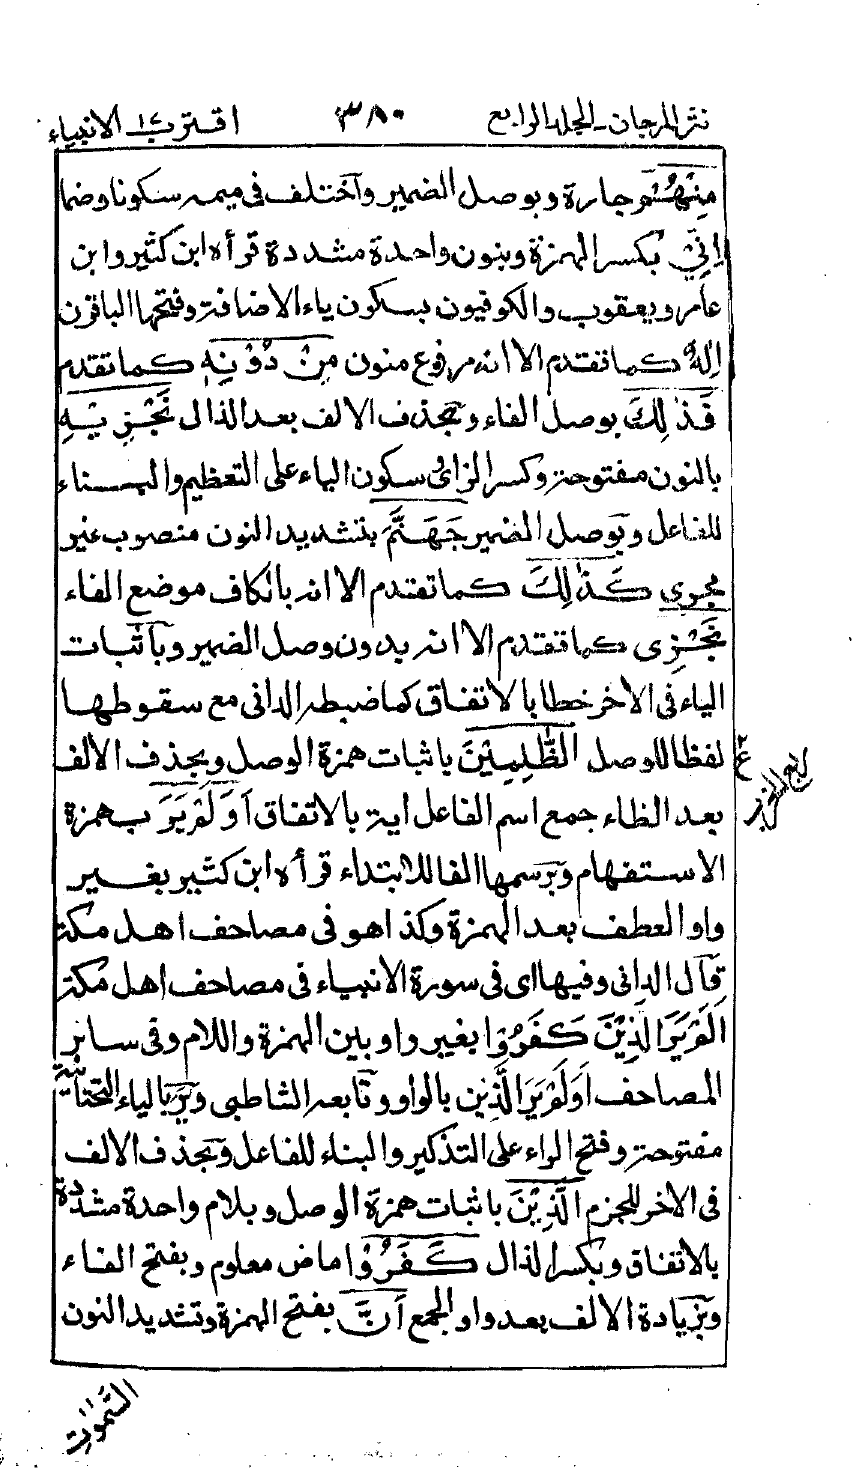 نثر المرجان - الجلد الرابع ٣٨٠ اقترب ١٧ الانبياء
مِنْهُمْ جارة وبوصل الضمير واختلف فى ميمه سكونا وضما
اِنِّىْ بكسر الهمزة وبنون واحدة مشددة قرأه ابن كثير وابن
عامر ويعقوب والكوفيون بسكون ياء الاضافة وفتحها الباقون
اِلٰهٌ كما تقدم الا انه مرفوع منون مِنْ دُوْنِهٖ كما تقدم
فَذٰلِكَ بوصل الفاء وبحذف الالف بعد الذال نَجْزِيْهِ
بالنون مفتوحة وكسر الزاى وسكون الياء على التعظيم والبناء
للفاعل وبوصل الضمير جَهَنَّمَ بتشديد النون منصوب غير
مجرى كَذٰلِكَ كما تقدم الا انه بالكاف موضع الفاء
نَجْزِى كما تقدم الا انه بدون وصل الضمير وباثبات
الياء فى الاخر خطا بالاتفاق كما ضبطه الدانى مع سقوطها
لفظا للوصل الظّٰلِمِيْنَ باثبات همزة الوصل وبحذف الالف
ع
ربع الحزب
بعد الظاء جمع اسم الفاعل اية بالاتفاق اَوَلَمْ يَرَ بهمزة
الاستفهام وبرسمها الفا للابتداء قرأه ابن كثير بغير
واو العطف بعد الهمزة وكذا هو فى مصاحف اهل مكة
قال الدانى وفيها اى فى سورة الانبياء فى مصاحف اهل مكة
اَلَمْ يَرَ الَّذِيْنَ كَفَرُوْا بغير واو بين الهمزة واللام وفى سائر
المصاحف اَوَلَمْ يَرَ الَّذِيْنَ بالواو وتابعه الشاطبى ويَرَ بالياء التحتانية
مفتوحة وفتح الراء على التذكير والبناء للفاعل وبحذف الالف
فى الاخر للجزم الَّذِيْنَ باثبات همزة الوصل وبلام واحدة مشددة
بالاتفاق وبكسر الذال كَفَرُوْا ماض معلوم وبفتح الفاء
وبزيادة الالف بعد واو الجمع اَنَّ بفتح الهمزة وتشديد النون
السَّمٰوٰتِ